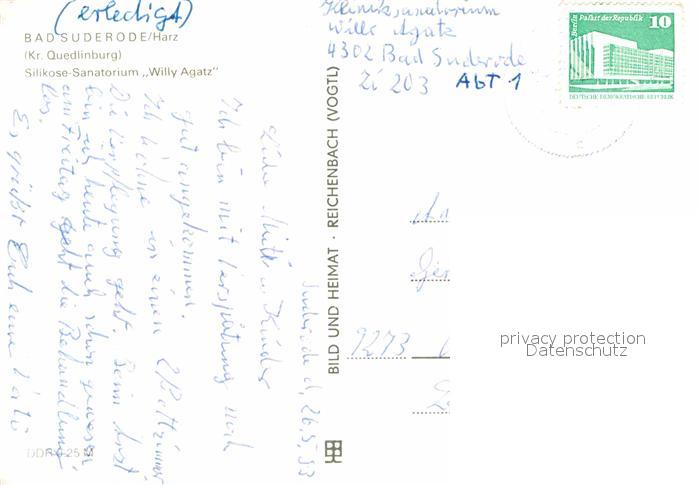 (erledigt)
BAD SUDERODE/Harz
(Kr. Quedlinburg)
Silikose-Sanatorium „Willy Agatz"
Kliniksanatorium
Willi Agatz
4302 Bad Suderode
Zi 203 Abt 1
Berlin, Palast der Republik
10
DEUTSCHE DEMOKRATISCHE REPUBLIK
Suderode d. 26.5.83
Liebe Mutti u. Kinder
Ich bin mit Verspätung noch
gut angekommen.
Ich wohne in einem 2 Bettzimmer
Die Verpflegung geht. Beim Arzt
bin ich heute auch schon gewesen
am Freitag geht die Behandlung
los.
Es grüßt Euch euer Vati
BILD UND HEIMAT · REICHENBACH (VOGTL)
9273
privacy protection
Datenschutz
DDR
25 M